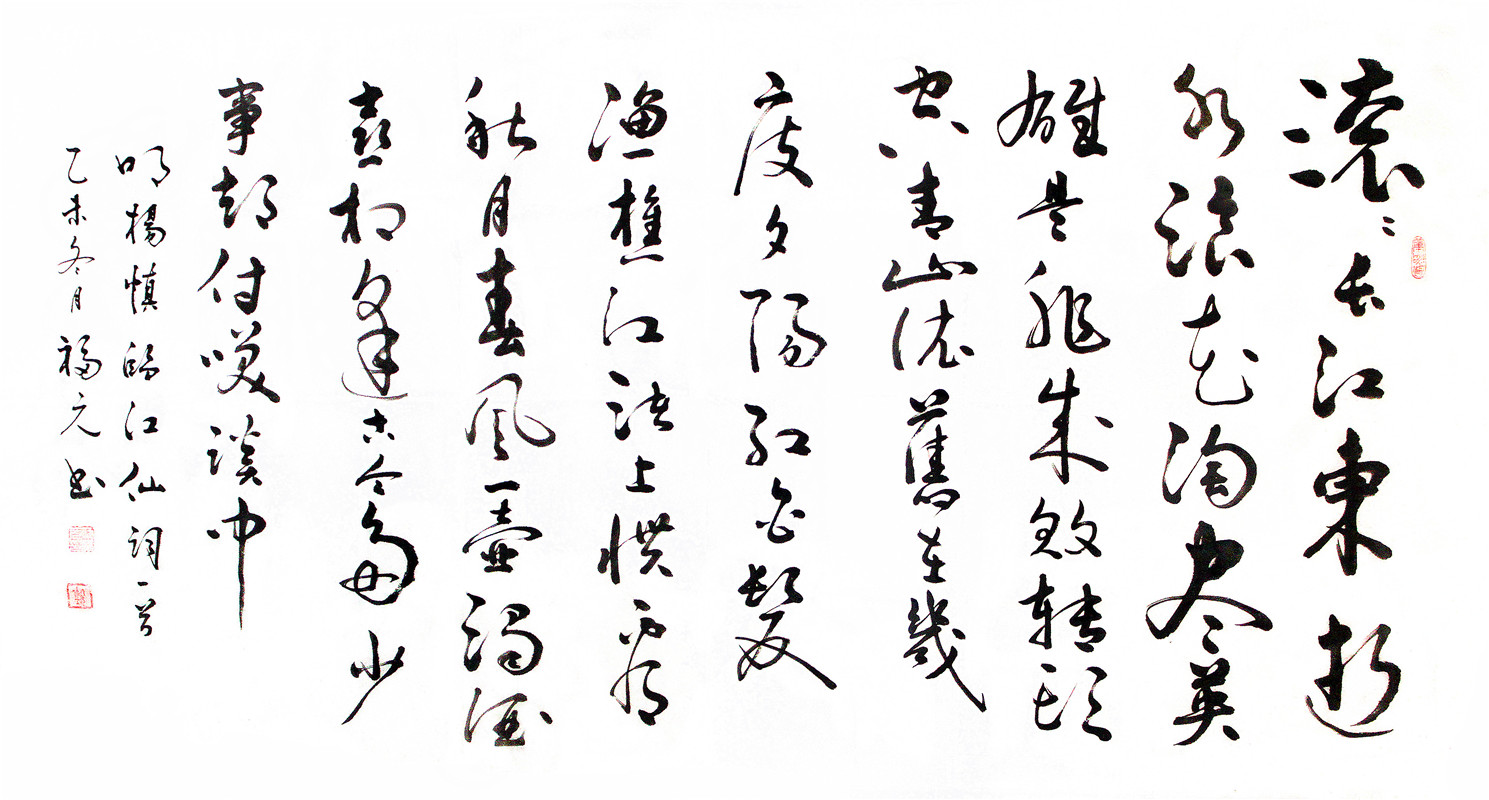 滚々长江東逝
水浪花淘尽英
雄是非成败转头
空青山依舊在幾
度夕陽红白髮
渔樵江渚上惯看
秋月春风一壶濁酒
喜相逢古今多少
事都付笑谈中
明楊慎臨江仙词一首
乙未冬月福元书